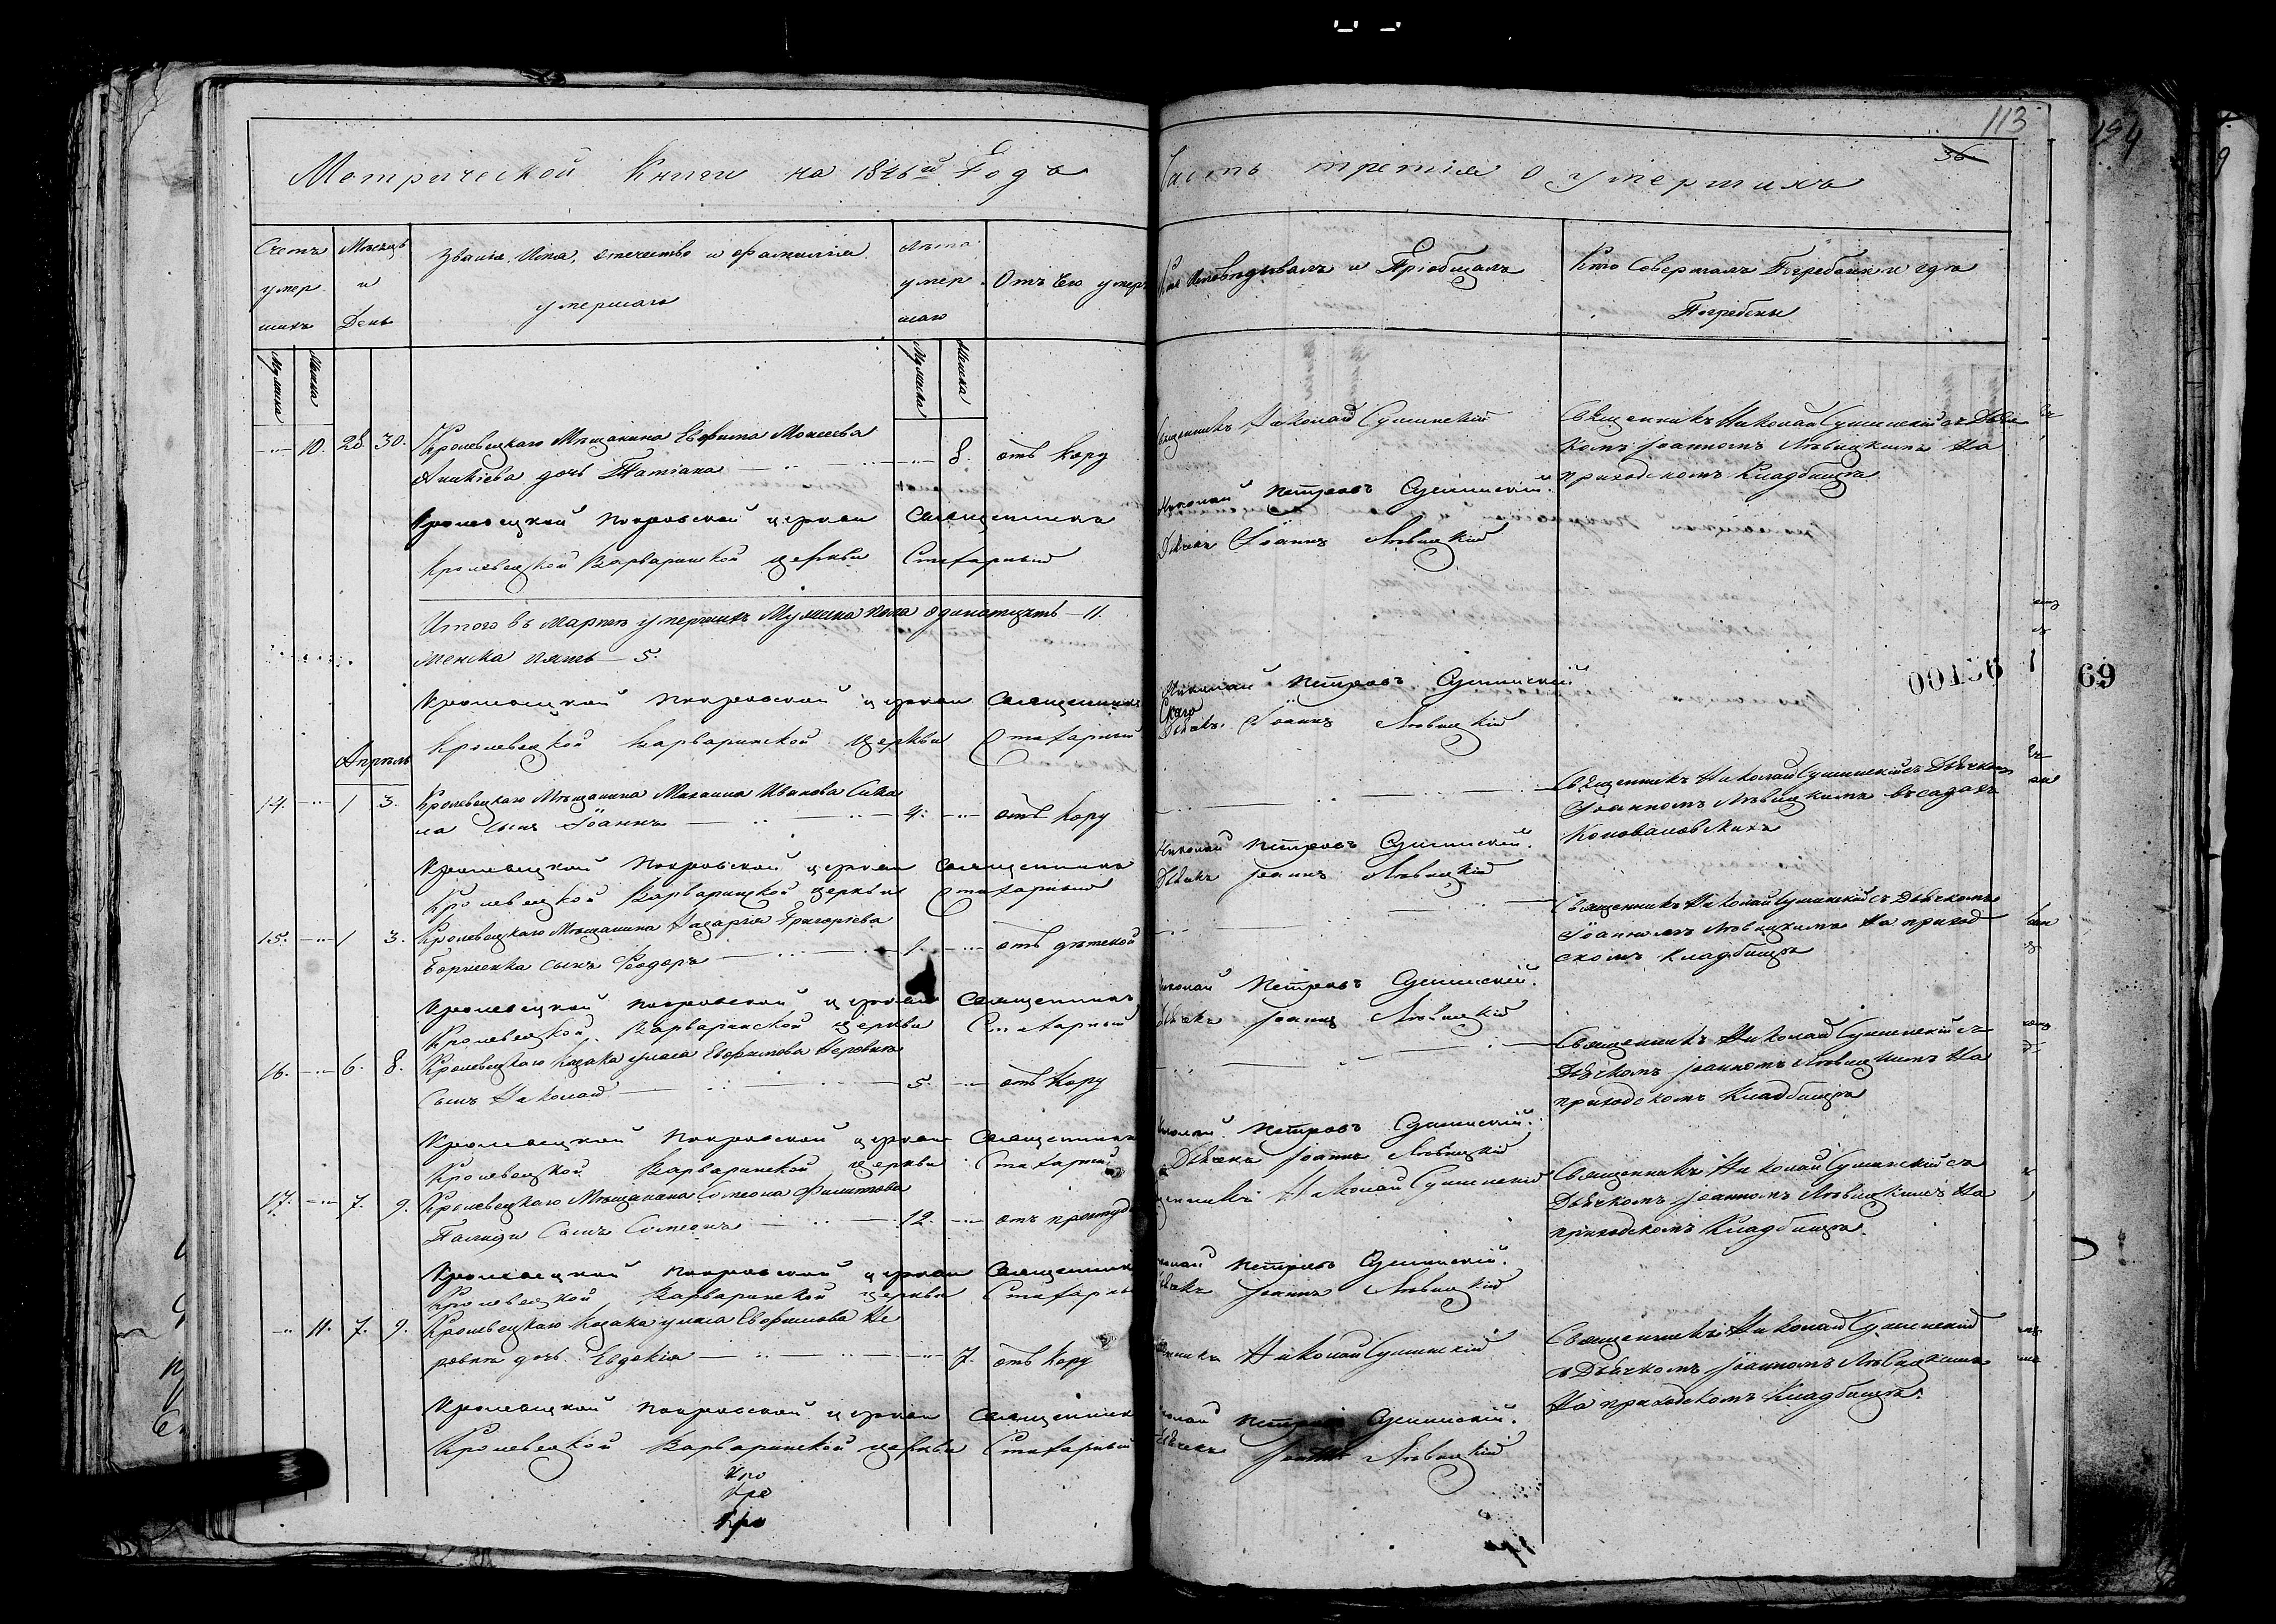 113
36
194
Метрической Книги на 1846й Годъ
Часть третія о умершихъ
Счетъ умершихъ
Мѣсяцъ и День
Званіе, Имя, отечество и Фамилія умершаго
Лѣта умершаго
Отъ Чего умеръ
Кто Исповѣдывалъ и Пріобщалъ
Кто Совершалъ Погребеніе и гдѣ Погребены
Мужска
Женска
Мужска
Женска
10. 28. 30. Кролевецкаго Мѣщанина Евфима Моисеева
Аникіева дочь Татіана 8. отъ Кору
Священникъ Николай Сушинскій
Священникъ Николай Сушинскій съ Дьяч
комъ Іоанномъ Лѣвицкимъ На
приходскомъ Кладбищѣ
Кролевецкой Покровской церкви Священникъ Николай Петровъ Сушинскій.
Кролевецкой Варваринской церкви Стихарный Дьячекъ Іоаннъ Лѣвицкій
Итого въ Мартѣ умершихъ Мужска пола одинатцать 11.
женска пять 5.
Кролевецкой Покровской церкви Священникъ Николай Петровъ Сушинскій
Кролевецкой Варваринской церкви Стихарный Дьячекъ Іоаннъ Лѣвицкій
00156
69
Апрѣль
14. 1 3. Кролевецкаго Мѣщанина Михаила Иванова
сынъ Іоаннъ 4. отъ Кору
Священникъ Николай Сушинскій съ Дьячкомъ
Іоанномъ Лѣвицкимъ въ садахъ
Коноваловскихъ
Кролевецкой Покровской церкви Священникъ Николай Петровъ Сушинскій.
Кролевецкой Варваринской церкви Стихарный Дьячекъ Іоаннъ Лѣвицкій
15. 1 3. Кролевецкаго Мѣщанина Назарія Григоріева
сынъ Феодоръ 1. отъ дѣтской
Священникъ Николай Сушинскій съ Дьячкомъ
Іоанномъ Лѣвицкимъ На приход
скомъ Кладбищѣ
Кролевецкой Покровской церкви Священникъ Николай Петровъ Сушинскій.
Кролевецкой Варваринской церкви Стихарный Дьячекъ Іоаннъ Лѣвицкій
16. 6. 8. Кролевецкаго Козака Уласа Евфимова
Сынъ Николай 5. отъ Кору
Священникъ Николай Сушинскій съ
Дьячкомъ Іоанномъ Лѣвицкимъ На
приходскомъ Кладбищѣ
Кролевецкой Покровской церкви Священникъ Николай Петровъ Сушинскій.
Кролевецкой Варваринской церкви Стихарный Дьячекъ Іоаннъ Лѣвицкій
17. 7. 9. Кролевецкаго Мѣщанина Симеона Филиппова
Сынъ Симеонъ 12. отъ простуд
Священникъ Николай Сушинскій
Священникъ Николай Сушинскій съ
Дьячкомъ Іоанномъ Лѣвицкимъ На
приходскомъ Кладбищѣ.
Кролевецкой Покровской церкви Священникъ Николай Петровъ Сушинскій.
Кролевецкой Варваринской церкви Стихарный Дьячекъ Іоаннъ Лѣвицкій
11. 7. 9. Кролевецкаго Козака Уласа Евфимова Не
дочь Евдокія 7. отъ Кору
Священникъ Николай Сушинскій
Священникъ Николай Сушинскій
съ Дьячкомъ Іоанномъ Лѣвицкимъ
На приходскомъ Кладбищѣ.
Кролевецкой Покровской церкви Священникъ Николай Петровъ Сушинскій.
Кролевецкой Варваринской церкви Стихарный Дьячекъ Іоаннъ Лѣвицкій
Кро
Кро
Кро